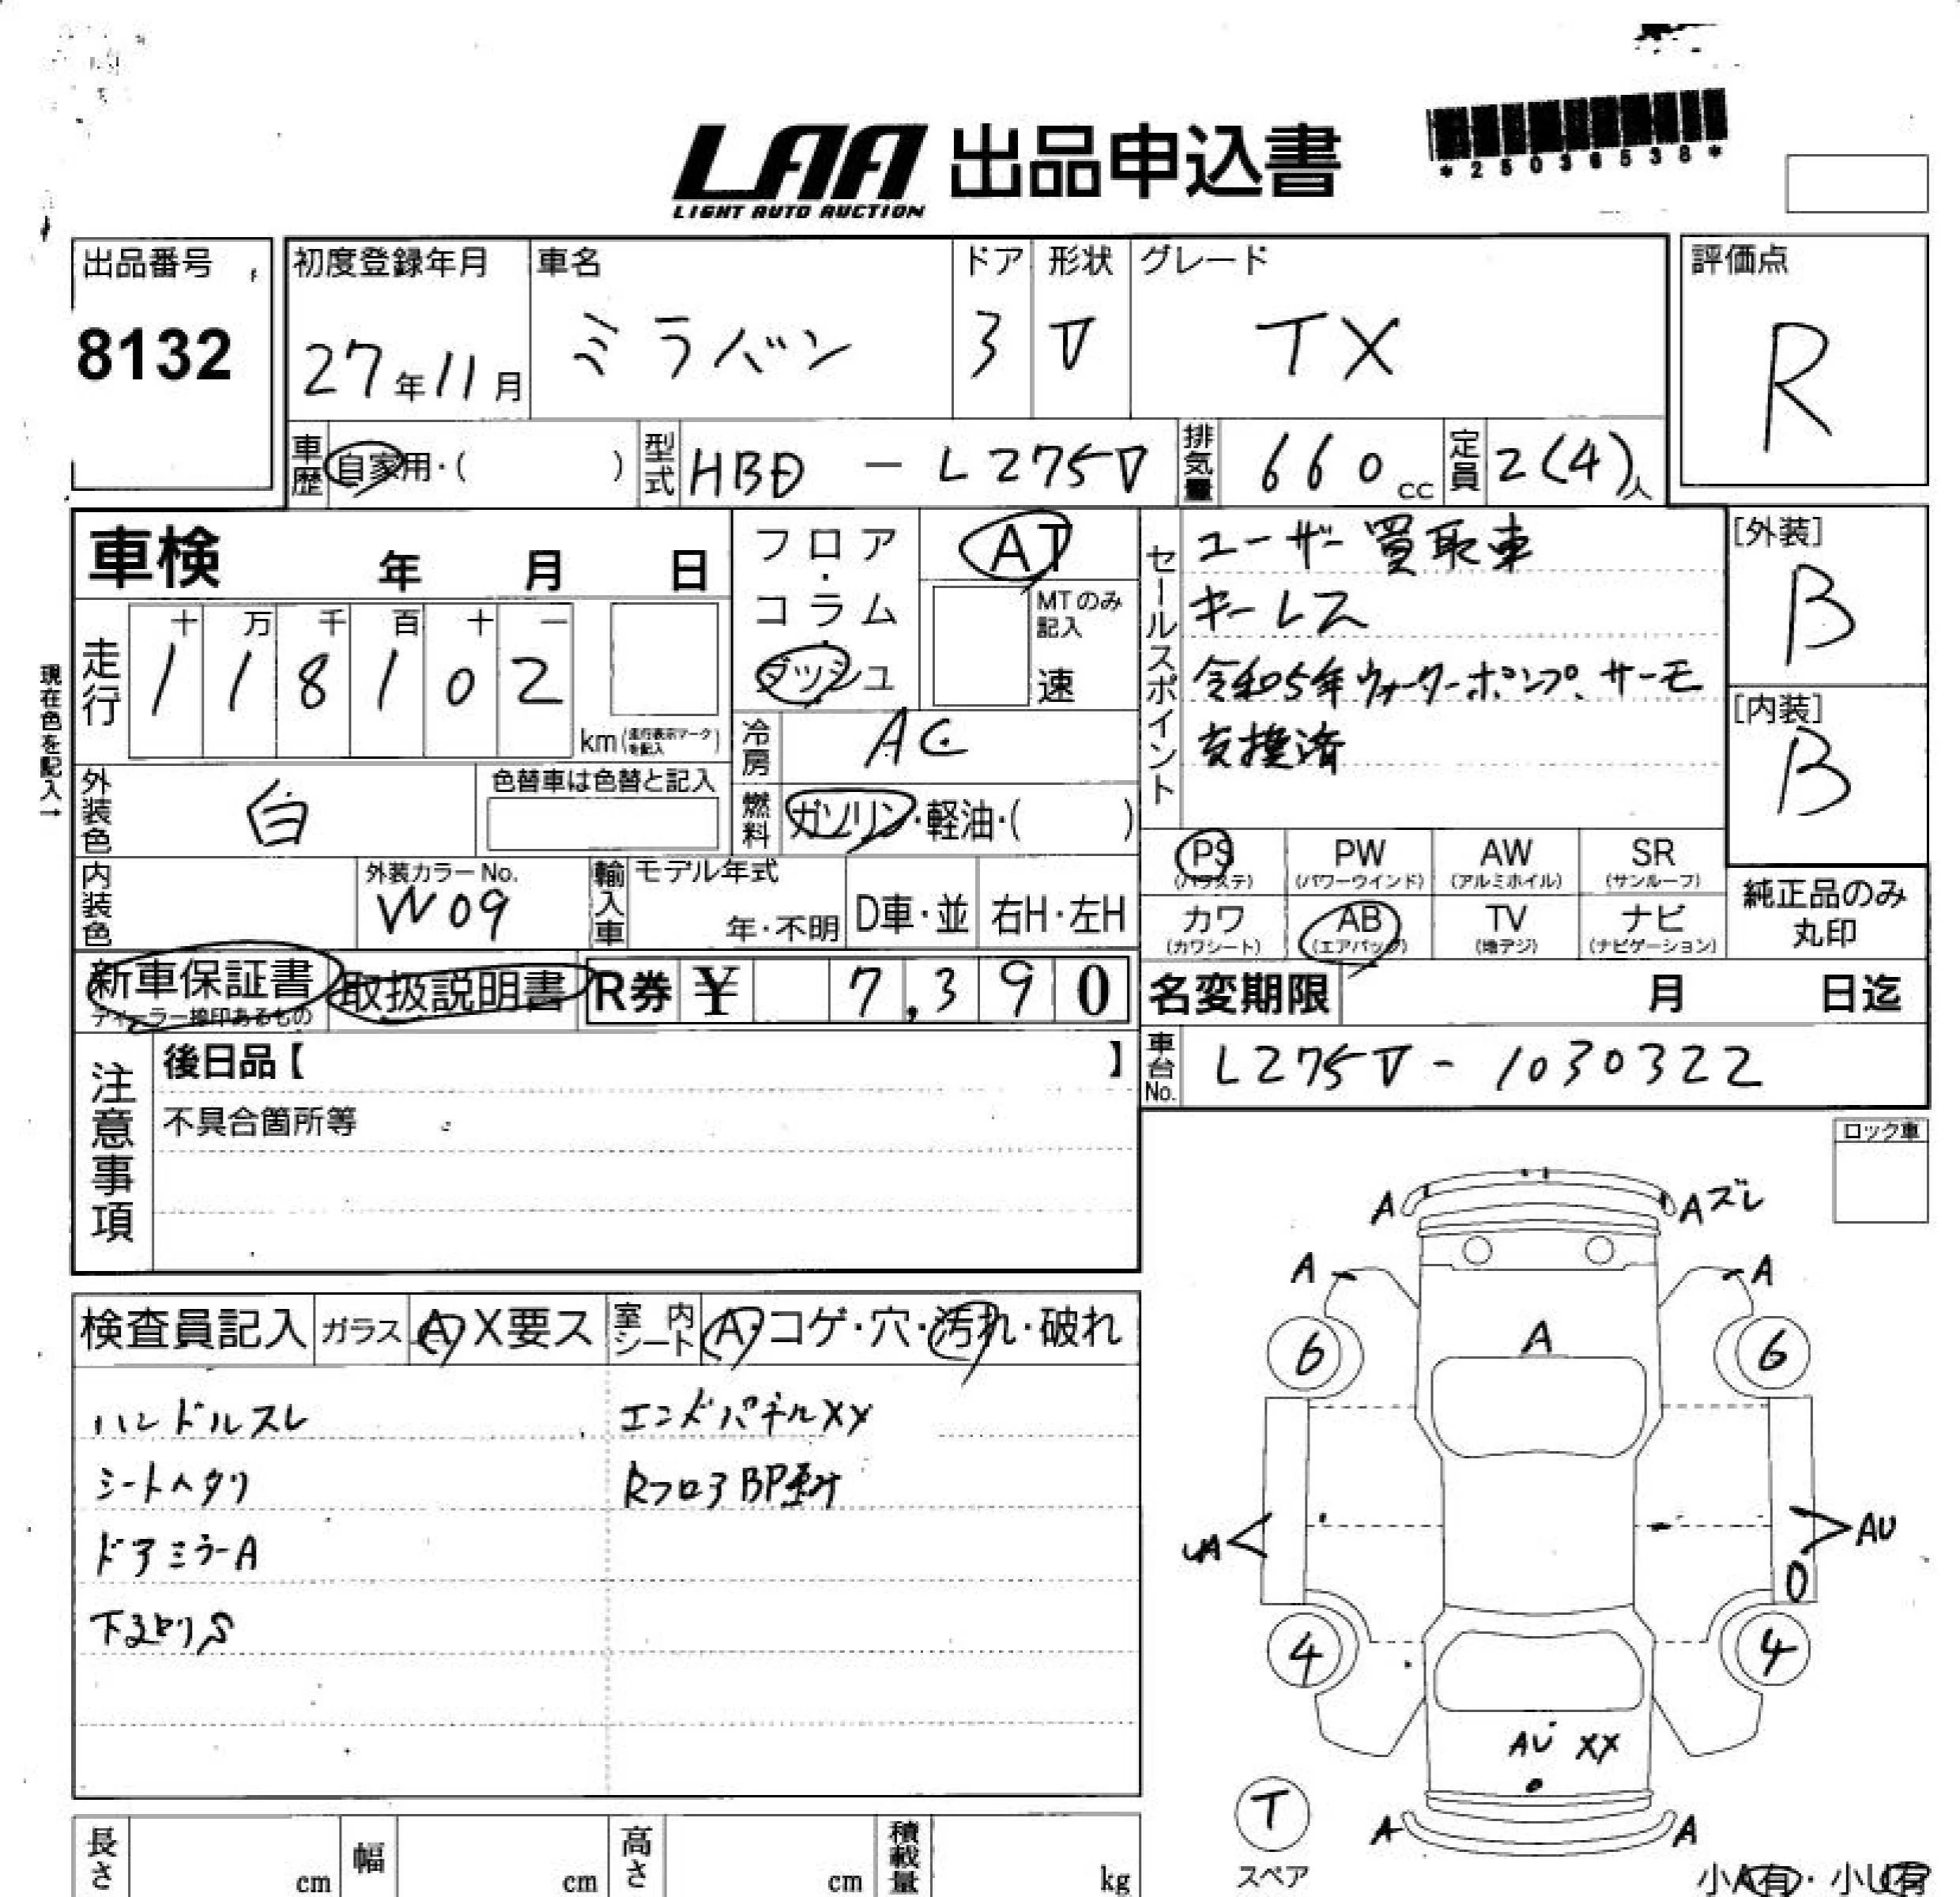 LAA 出品申込書
LIGHT AUTO AUCTION
*25036538*
出品番号
8132
初度登録年月
27年11月
車名
ミラバン
ドア
3
形状
V
グレード
TX
評価点
R
車歴
自家用・( )
型式
HBD - L275V
排気量
660cc
定員
2(4)人
車検 年 月 日
走行
十 万 千 百 十 一
1 1 8 1 0 2
km(走行表示マークを記入)
現在色を記入→
外装色
白
色替車は色替と記入
内装色
外装カラーNo.
W09
フロア・コラム・ダッシュ
AT
MTのみ記入
速
冷房
AC
燃料
ガソリン・軽油・( )
輸入車
モデル年式
年・不明
D車・並
右H・左H
セールスポイント
ユーザー買取車
キーレス
令和5年ウォーターポンプ、サーモ
交換済
[外装]
B
[内装]
B
PS (パワステ)
PW (パワーウインド)
AW (アルミホイル)
SR (サンルーフ)
カワ (カワシート)
AB (エアバッグ)
TV (地デジ)
ナビ (ナビゲーション)
純正品のみ
丸印
新車保証書
ディーラー捺印あるもの
取扱説明書
R券 ¥ 7,390
名変期限 月 日迄
車台No.
L275V - 1030322
注意事項
後日品【 】
不具合箇所等
ロック車
検査員記入
ガラス A X要ス
室内シート A・コゲ・穴・汚れ・破れ
ハンドルスレ
シートヘタリ
ドアミラーA
下廻りS
エンドパネルXX
RフロアBP
A
Aズレ
A
A
6
6
A
UA
AU
4
4
AU XX
T
スペア
A
A
小A有・小U有
長さ cm
幅 cm
高さ cm
積載量 kg